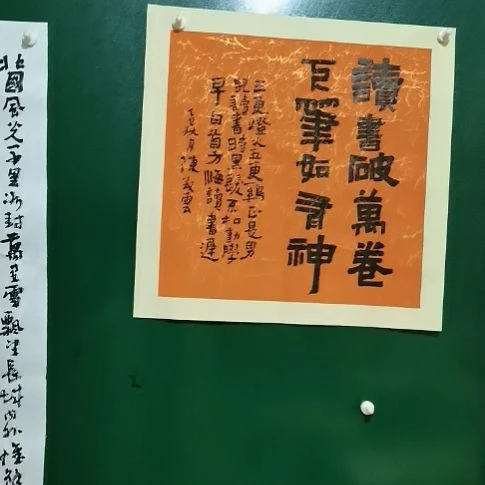 讀書破萬卷
下筆如有神
三更燈火五更鷄正是男
兒讀書時黑髮不知勤學
早白首方悔讀書遲
北國風光千里冰封萬里雪飄望長城内外惟餘